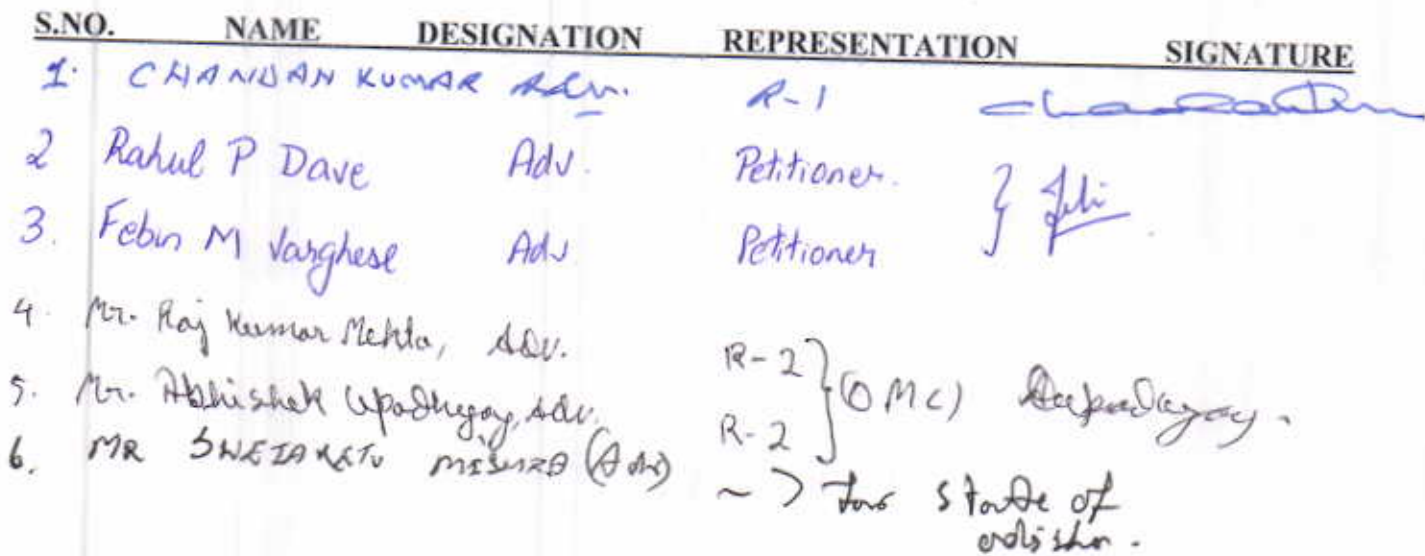 S.NO. NAME DESIGNATION REPRESENTATION SIGNATURE
1. CHANDAN KUMAR Adv. R-1
2 Rahul P Dave Adv. Petitioner.
3. Febin M Varghese Adv Petitioner
4. Mr. Raj Kumar Mehta, Adv. R-2
5. Mr. Abhishek Upadhyay, Adv. R-2 } (OMC) Aupadyay.
6. MR SWETAKETU MISHRA (Adv) ~ > for state of
odisha.